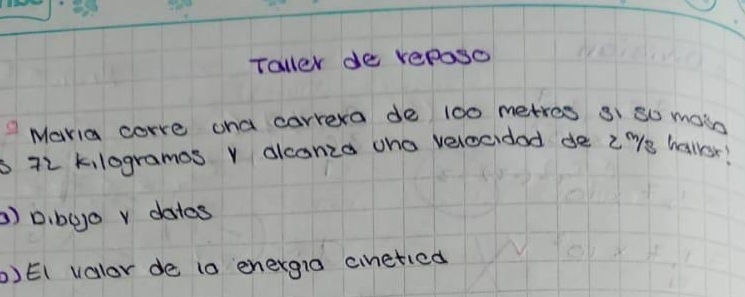 Taller de reposo
Maria corre una carrera de 100 metros si su masa
s 72 kilogramos y alcanza una velocidad de 2 m/s hallar:
a) Dibujo y datos
b) El valor de la energia cinetica